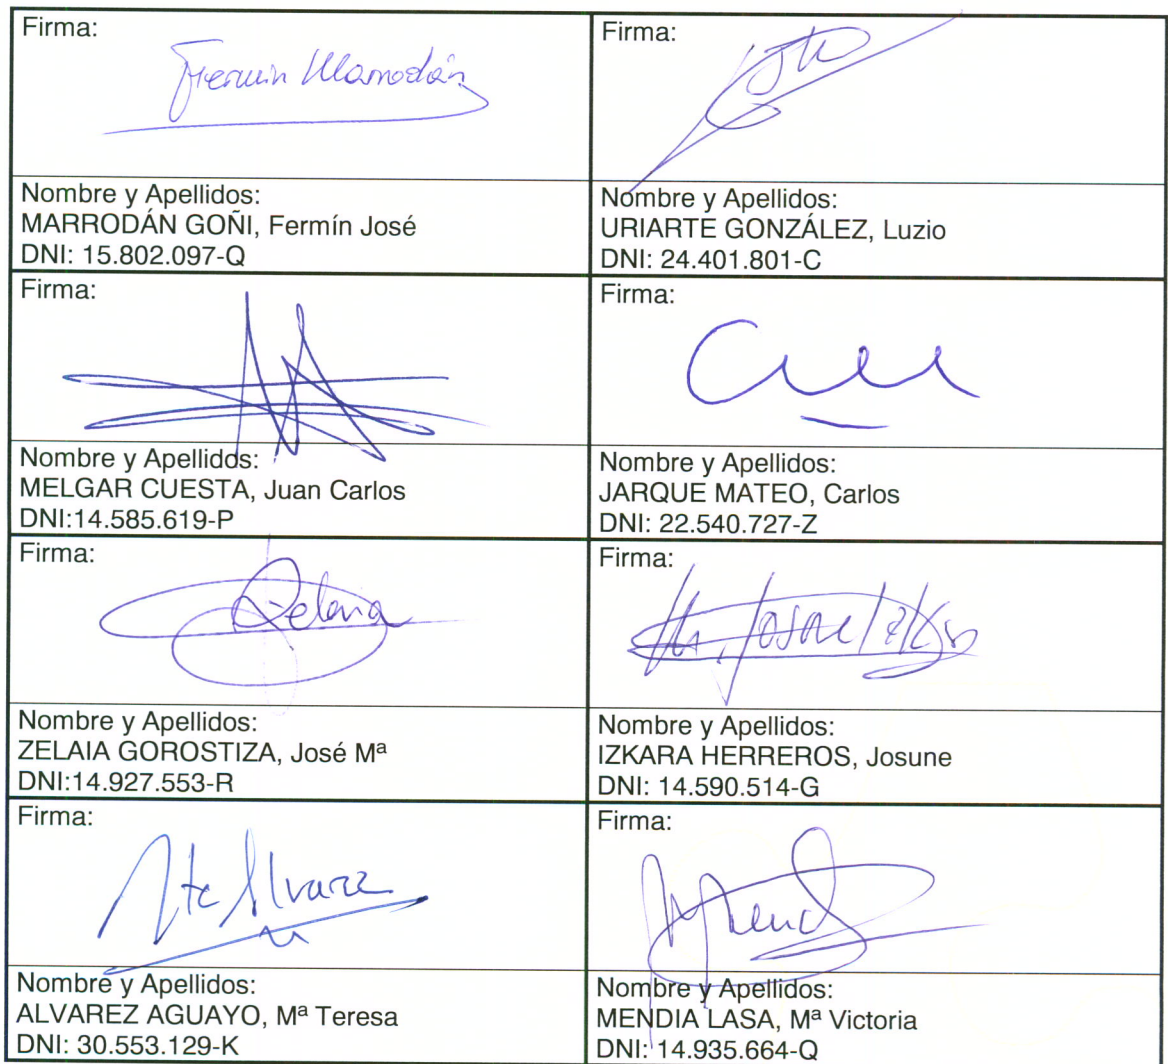 Firma:
Fermin Marrodán
Nombre y Apellidos:
MARRODÁN GOÑI, Fermín José
DNI: 15.802.097-Q
Firma:
Nombre y Apellidos:
URIARTE GONZÁLEZ, Luzio
DNI: 24.401.801-C
Firma:
Nombre y Apellidos:
MELGAR CUESTA, Juan Carlos
DNI:14.585.619-P
Firma:
Nombre y Apellidos:
JARQUE MATEO, Carlos
DNI: 22.540.727-Z
Firma:
Zelaia
Nombre y Apellidos:
ZELAIA GOROSTIZA, José Mª
DNI:14.927.553-R
Firma:
Nombre y Apellidos:
IZKARA HERREROS, Josune
DNI: 14.590.514-G
Firma:
Mte Alvarez
Nombre y Apellidos:
ALVAREZ AGUAYO, Mª Teresa
DNI: 30.553.129-K
Firma:
Nombre y Apellidos:
MENDIA LASA, Mª Victoria
DNI: 14.935.664-Q